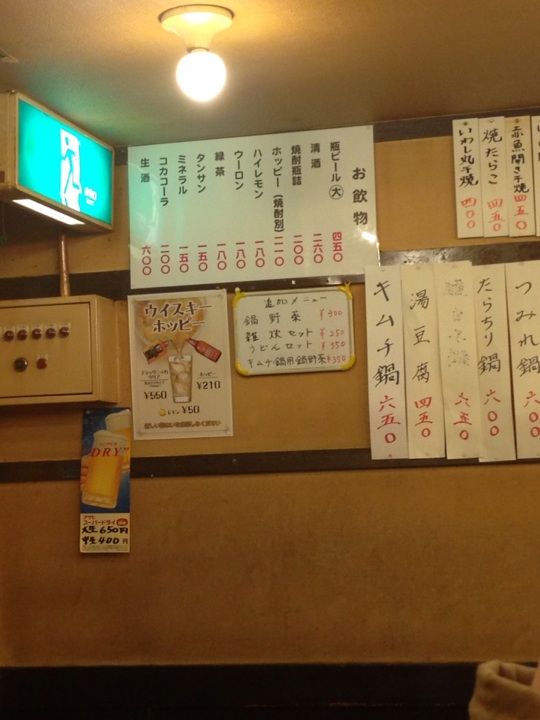 お飲物
瓶ビール(大) 四五〇
清酒 二六〇
焼酎瓶詰
ホッピー(焼酎別) 二一〇
ハイレモン 一八〇
ウーロン 一八〇
緑茶 一八〇
タンサン 一五〇
ミネラル 一五〇
コカコーラ 二〇〇
生酒 六〇〇
赤魚開き手焼 四五〇
焼たらこ 四五〇
いわし丸干焼 四〇〇
つみれ鍋 六〇〇
たらちり鍋 六〇〇
湯豆腐 四五〇
キムチ鍋 六五〇
追加メニュー
鍋野菜 ¥300
雑炊セット ¥250
うどんセット ¥350
キムチ鍋用鍋野菜¥350
ウイスキー
ホッピー
¥550
ホッピー
¥210
レモン ¥50
DRY
アサヒ
スーパードライ
大生 650円
中生 400円